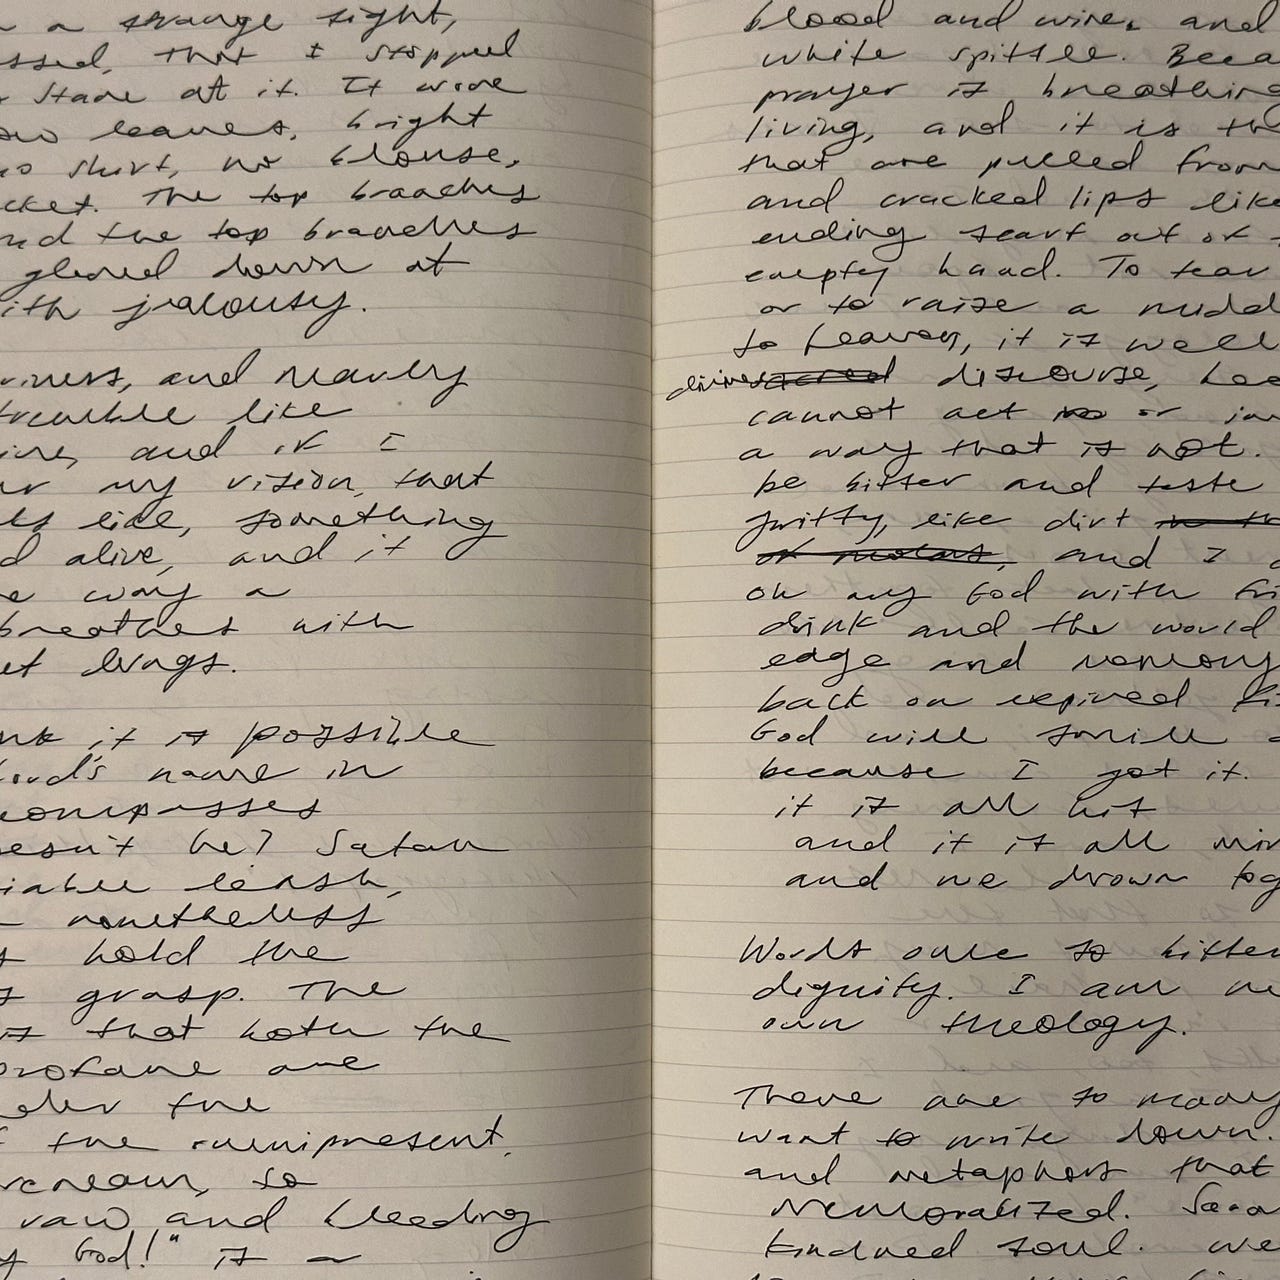 a strange sight,
that I stopped
stare at it. It wore
leaves, bright
no shirt, no blouse,
The top branches
and the top branches
down at
with jealousy.
and nearly
tremble like
and if I
my vision, that
like, something
alive, and it
way a
breathes with
lungs.
it is possible
Lord's name in
encompasses
doesn't he? Satan
leash,
nonetheless
hold the
grasp. The
that both the
profane are
under the
the omnipresent,
so
raw and bleeding
God!" is a
blood and wine, and
white spittle. Beca
prayer is breathing
living, and it is th
that are pulled from
and cracked lips like
ending scarf out of
empty hand. To tear
or to raise a
to heaven, it is well
divine sacred discourse,
cannot act or
a way that is not.
be bitter and taste
gritty, like dirt
and I
on my God with
drink and the world
edge and
back on expired
God will smile
because I got it.
it is all his
and it is all
and we drown tog
Words are so bitter
dignity. I am
own theology.
There are so many
want to write down.
and metaphors that
memorialized.
kindred soul. we